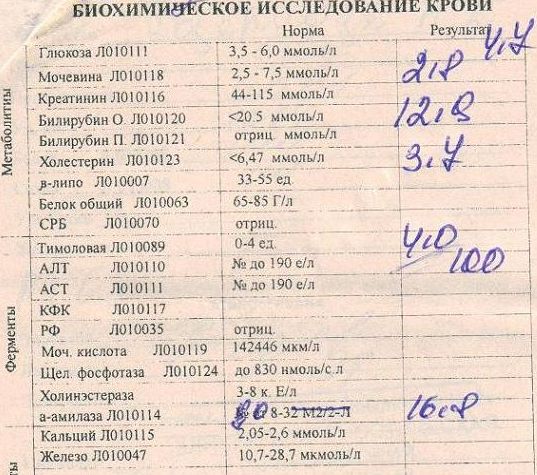 БИОХИМИЧЕСКОЕ ИССЛЕДОВАНИЕ КРОВИ
Норма Результат
Глюкоза Л010111 3,5 - 6,0 ммоль/л 4,7
Мочевина Л010118 2,5 - 7,5 ммоль/л 2,8
Креатинин Л010116 44-115 ммоль/л
Билирубин О. Л010120 <20.5 ммоль/л 12,8
Билирубин П. Л010121 отриц. ммоль/л
Холестерин Л010123 <6,47 ммоль/л 3,7
в-липо Л010007 33-55 ед.
Белок общий Л010063 65-85 Г/л
СРБ Л010070 отриц.
Тимоловая Л010089 0-4 ед. 4,0
АЛТ Л010110 № до 190 е/л 100
АСТ Л010111 № до 190 е/л
КФК Л010117
РФ Л010035 отриц.
Моч. кислота Л010119 142446 мкм/л
Щел. фосфотаза Л010124 до 830 нмоль/с.л
Холинэстераза 3-8 к. Е/л
а-амилаза Л010114 8-32 М2/2-Л 16,8
Кальций Л010115 2,05-2,6 ммоль/л
Железо Л010047 10,7-28,7 мкмоль/л
Метаболиты
Ферменты